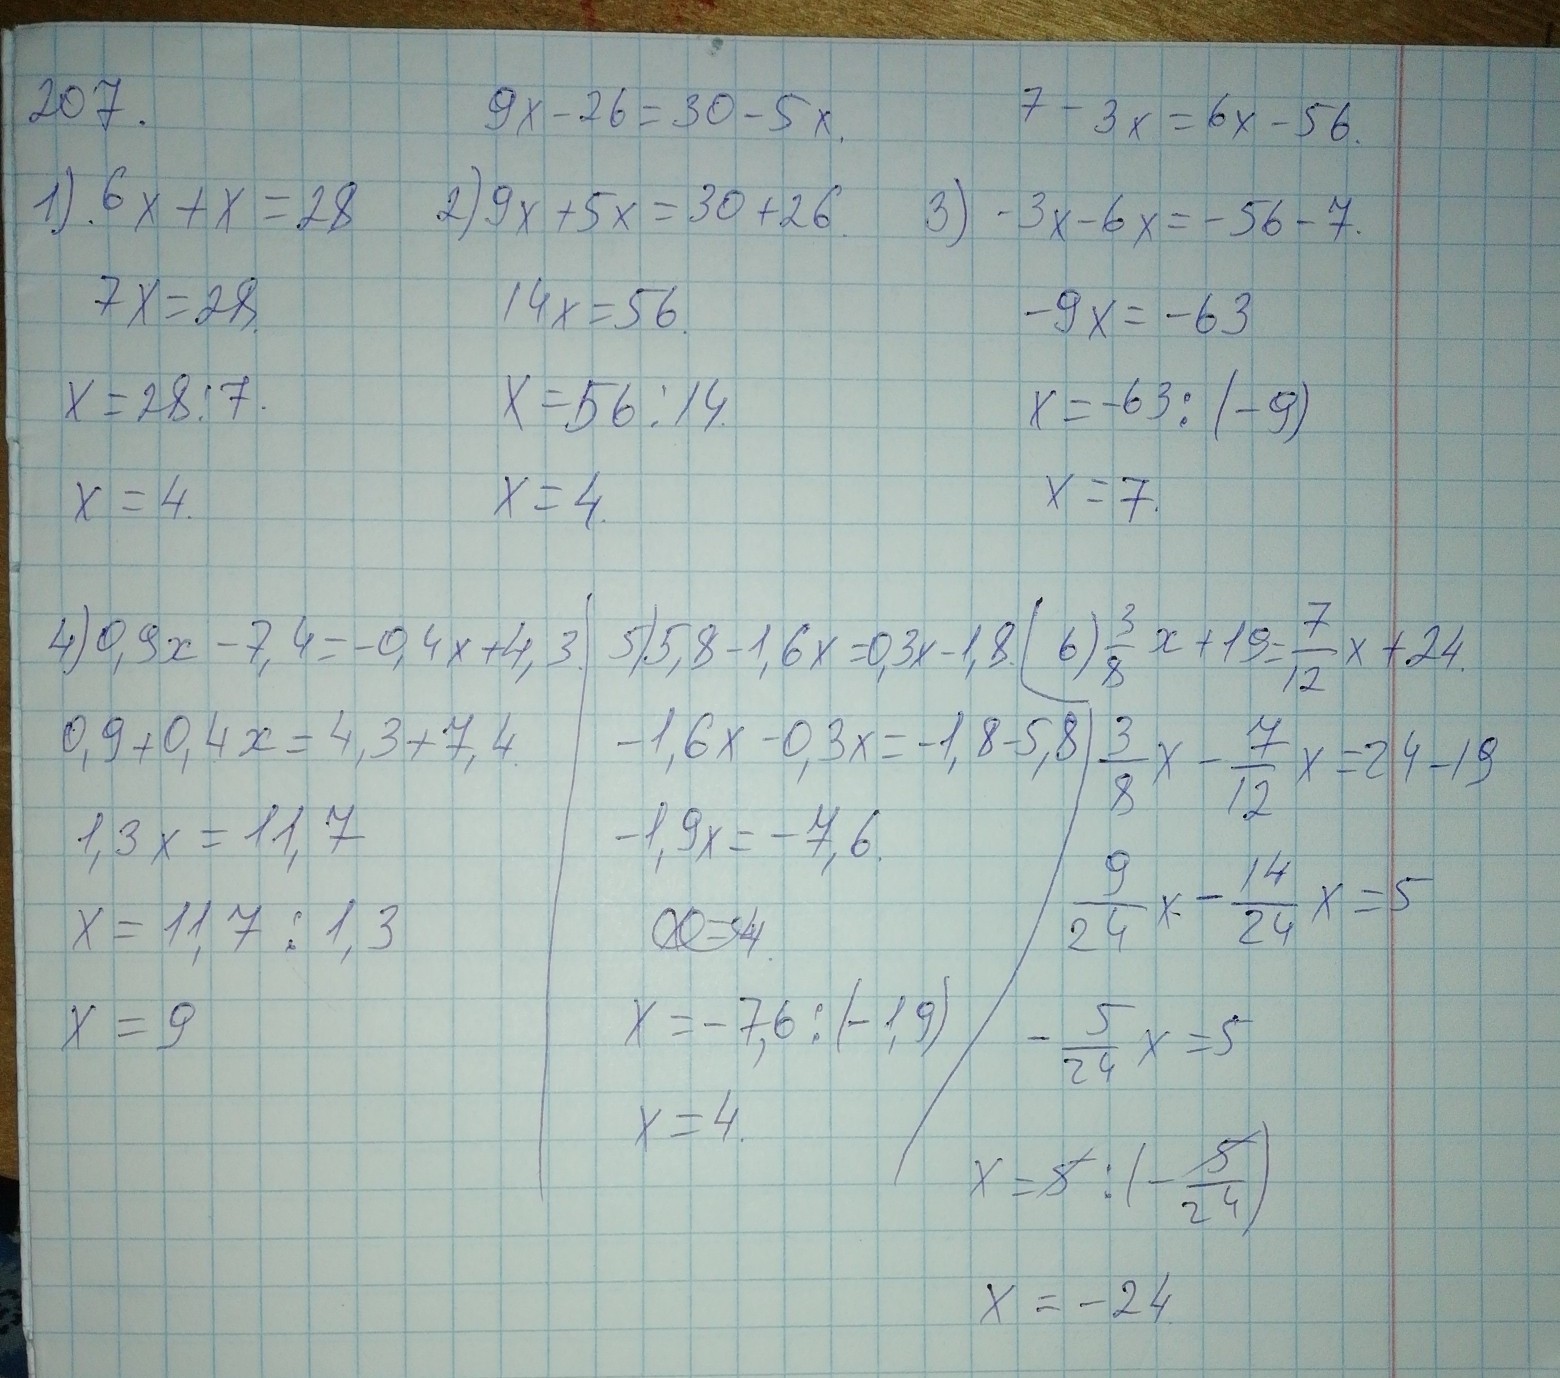 207.
1). 6x+x=28
7x=28.
x=28:7.
x=4.
9x-26=30-5x.
2) 9x+5x=30+26.
14x=56.
x=56:14.
x=4.
7-3x=6x-56.
3) -3x-6x=-56-7.
-9x=-63
x=-63:(-9)
x=7.
4) 0,9x-7,4=-0,4x+4,3.
0,9+0,4x=4,3+7,4.
1,3x=11,7
x=11,7:1,3
x=9
5) 5,8-1,6x=0,3x-1,8.
-1,6x-0,3x=-1,8-5,8
-1,9x=-7,6.
x=-7,6:(-1,9)
x=4.
6) 3/8 x+19=7/12 x+24.
3/8 x-7/12 x=24-19
9/24 x-14/24 x=5
-5/24 x=5
x=5:(-5/24)
x=-24